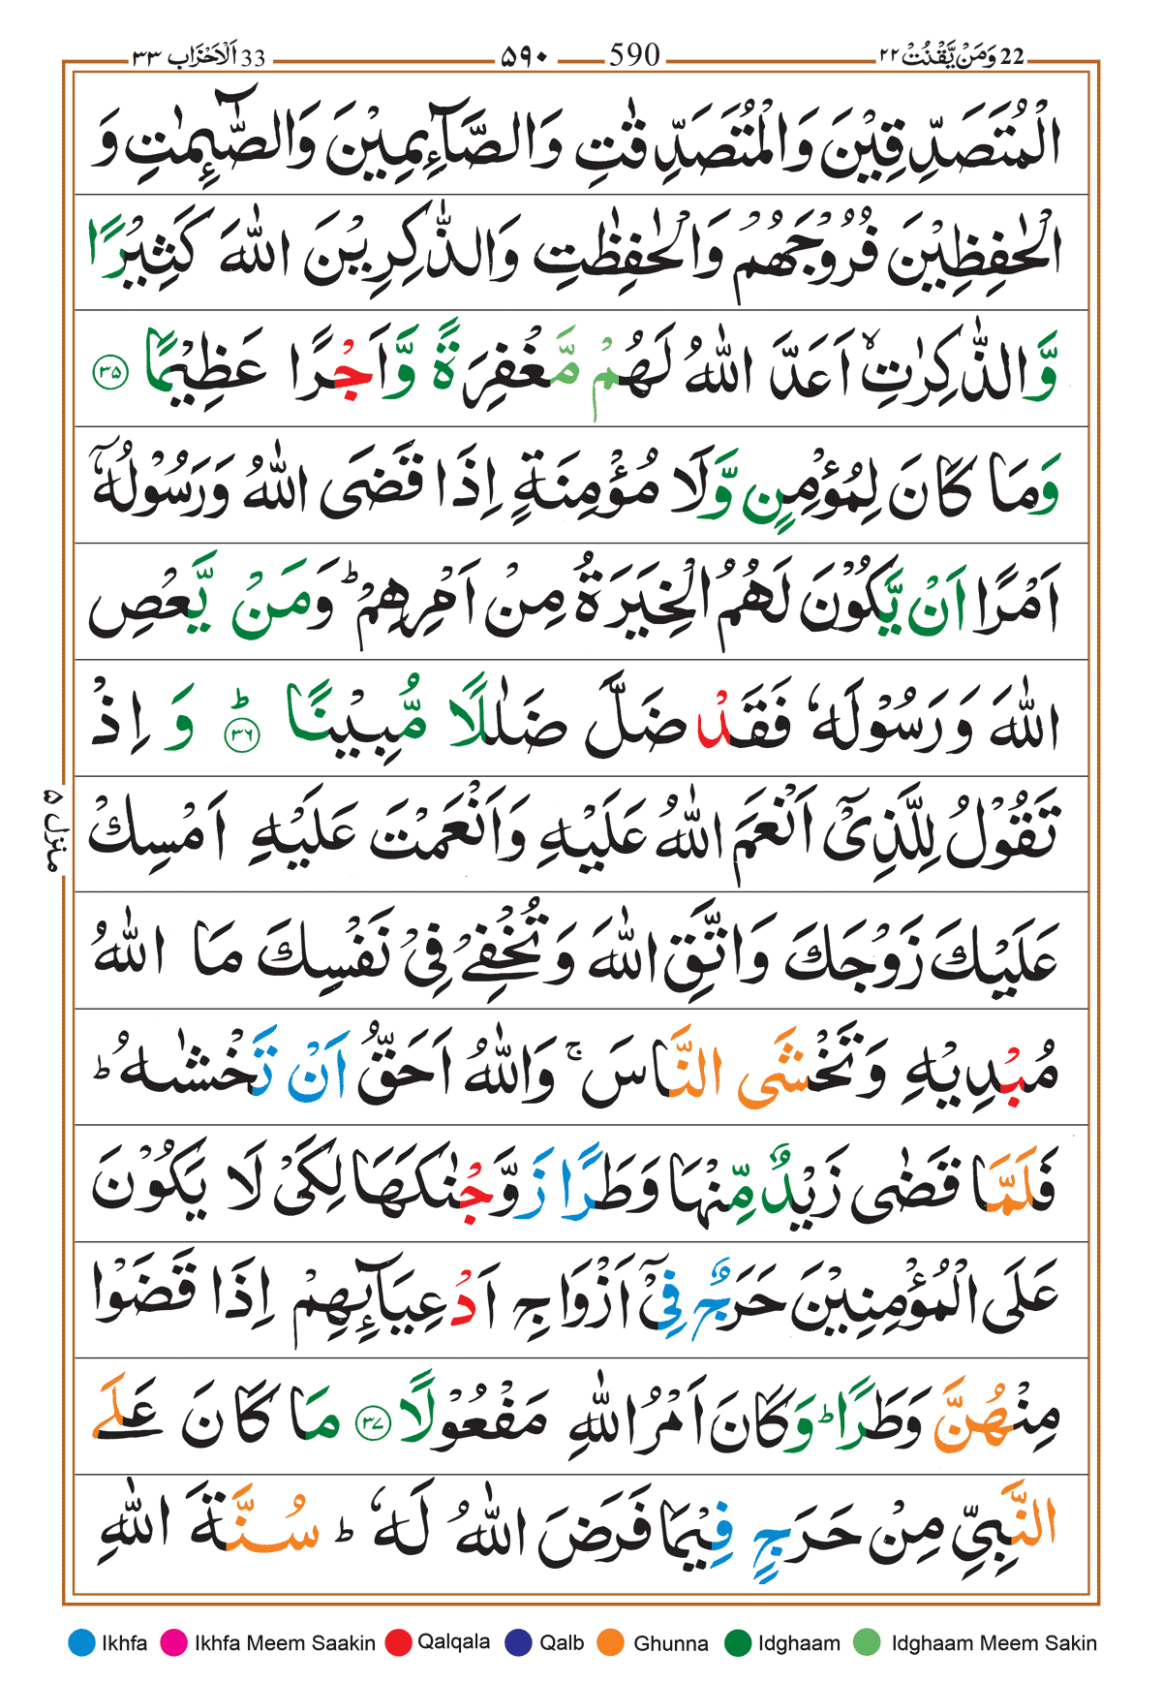 33 اَلْاَحْزَاب ٣٣
۵۹۰ 590
22 وَمَنْ يَّقْنُتْ ٢٢
الْمُتَصَدِّقِيْنَ وَالْمُتَصَدِّقٰتِ وَالصَّآئِمِيْنَ وَالصّٰٓئِمٰتِ وَ
الْحٰفِظِيْنَ فُرُوْجَهُمْ وَالْحٰفِظٰتِ وَالذّٰكِرِيْنَ اللّٰهَ كَثِيْرًا
وَّالذّٰكِرٰتِ ۙ اَعَدَّ اللّٰهُ لَهُمْ مَّغْفِرَةً وَّاَجْرًا عَظِيْمًا ۳۵
وَمَا كَانَ لِمُؤْمِنٍ وَّلَا مُؤْمِنَةٍ اِذَا قَضَى اللّٰهُ وَرَسُوْلُهٗٓ
اَمْرًا اَنْ يَّكُوْنَ لَهُمُ الْخِيَرَةُ مِنْ اَمْرِهِمْ ؕ وَمَنْ يَّعْصِ
اللّٰهَ وَرَسُوْلَهٗ فَقَدْ ضَلَّ ضَلٰلًا مُّبِيْنًا ؕ ۳۶ وَ اِذْ
تَقُوْلُ لِلَّذِىْٓ اَنْعَمَ اللّٰهُ عَلَيْهِ وَاَنْعَمْتَ عَلَيْهِ اَمْسِكْ
عَلَيْكَ زَوْجَكَ وَاتَّقِ اللّٰهَ وَتُخْفِىْ فِىْ نَفْسِكَ مَا اللّٰهُ
مُبْدِيْهِ وَتَخْشَى النَّاسَ ۚ وَاللّٰهُ اَحَقُّ اَنْ تَخْشٰهُ ؕ
فَلَمَّا قَضٰى زَيْدٌ مِّنْهَا وَطَرًا زَوَّجْنٰكَهَا لِكَىْ لَا يَكُوْنَ
عَلَى الْمُؤْمِنِيْنَ حَرَجٌ فِىْٓ اَزْوَاجِ اَدْعِيَآئِهِمْ اِذَا قَضَوْا
مِنْهُنَّ وَطَرًا ؕ وَكَانَ اَمْرُ اللّٰهِ مَفْعُوْلًا ۳۷ مَا كَانَ عَلَى
النَّبِىِّ مِنْ حَرَجٍ فِيْمَا فَرَضَ اللّٰهُ لَهٗ ؕ سُنَّةَ اللّٰهِ
منزل ۵
Ikhfa Ikhfa Meem Saakin Qalqala Qalb Ghunna Idghaam Idghaam Meem Sakin